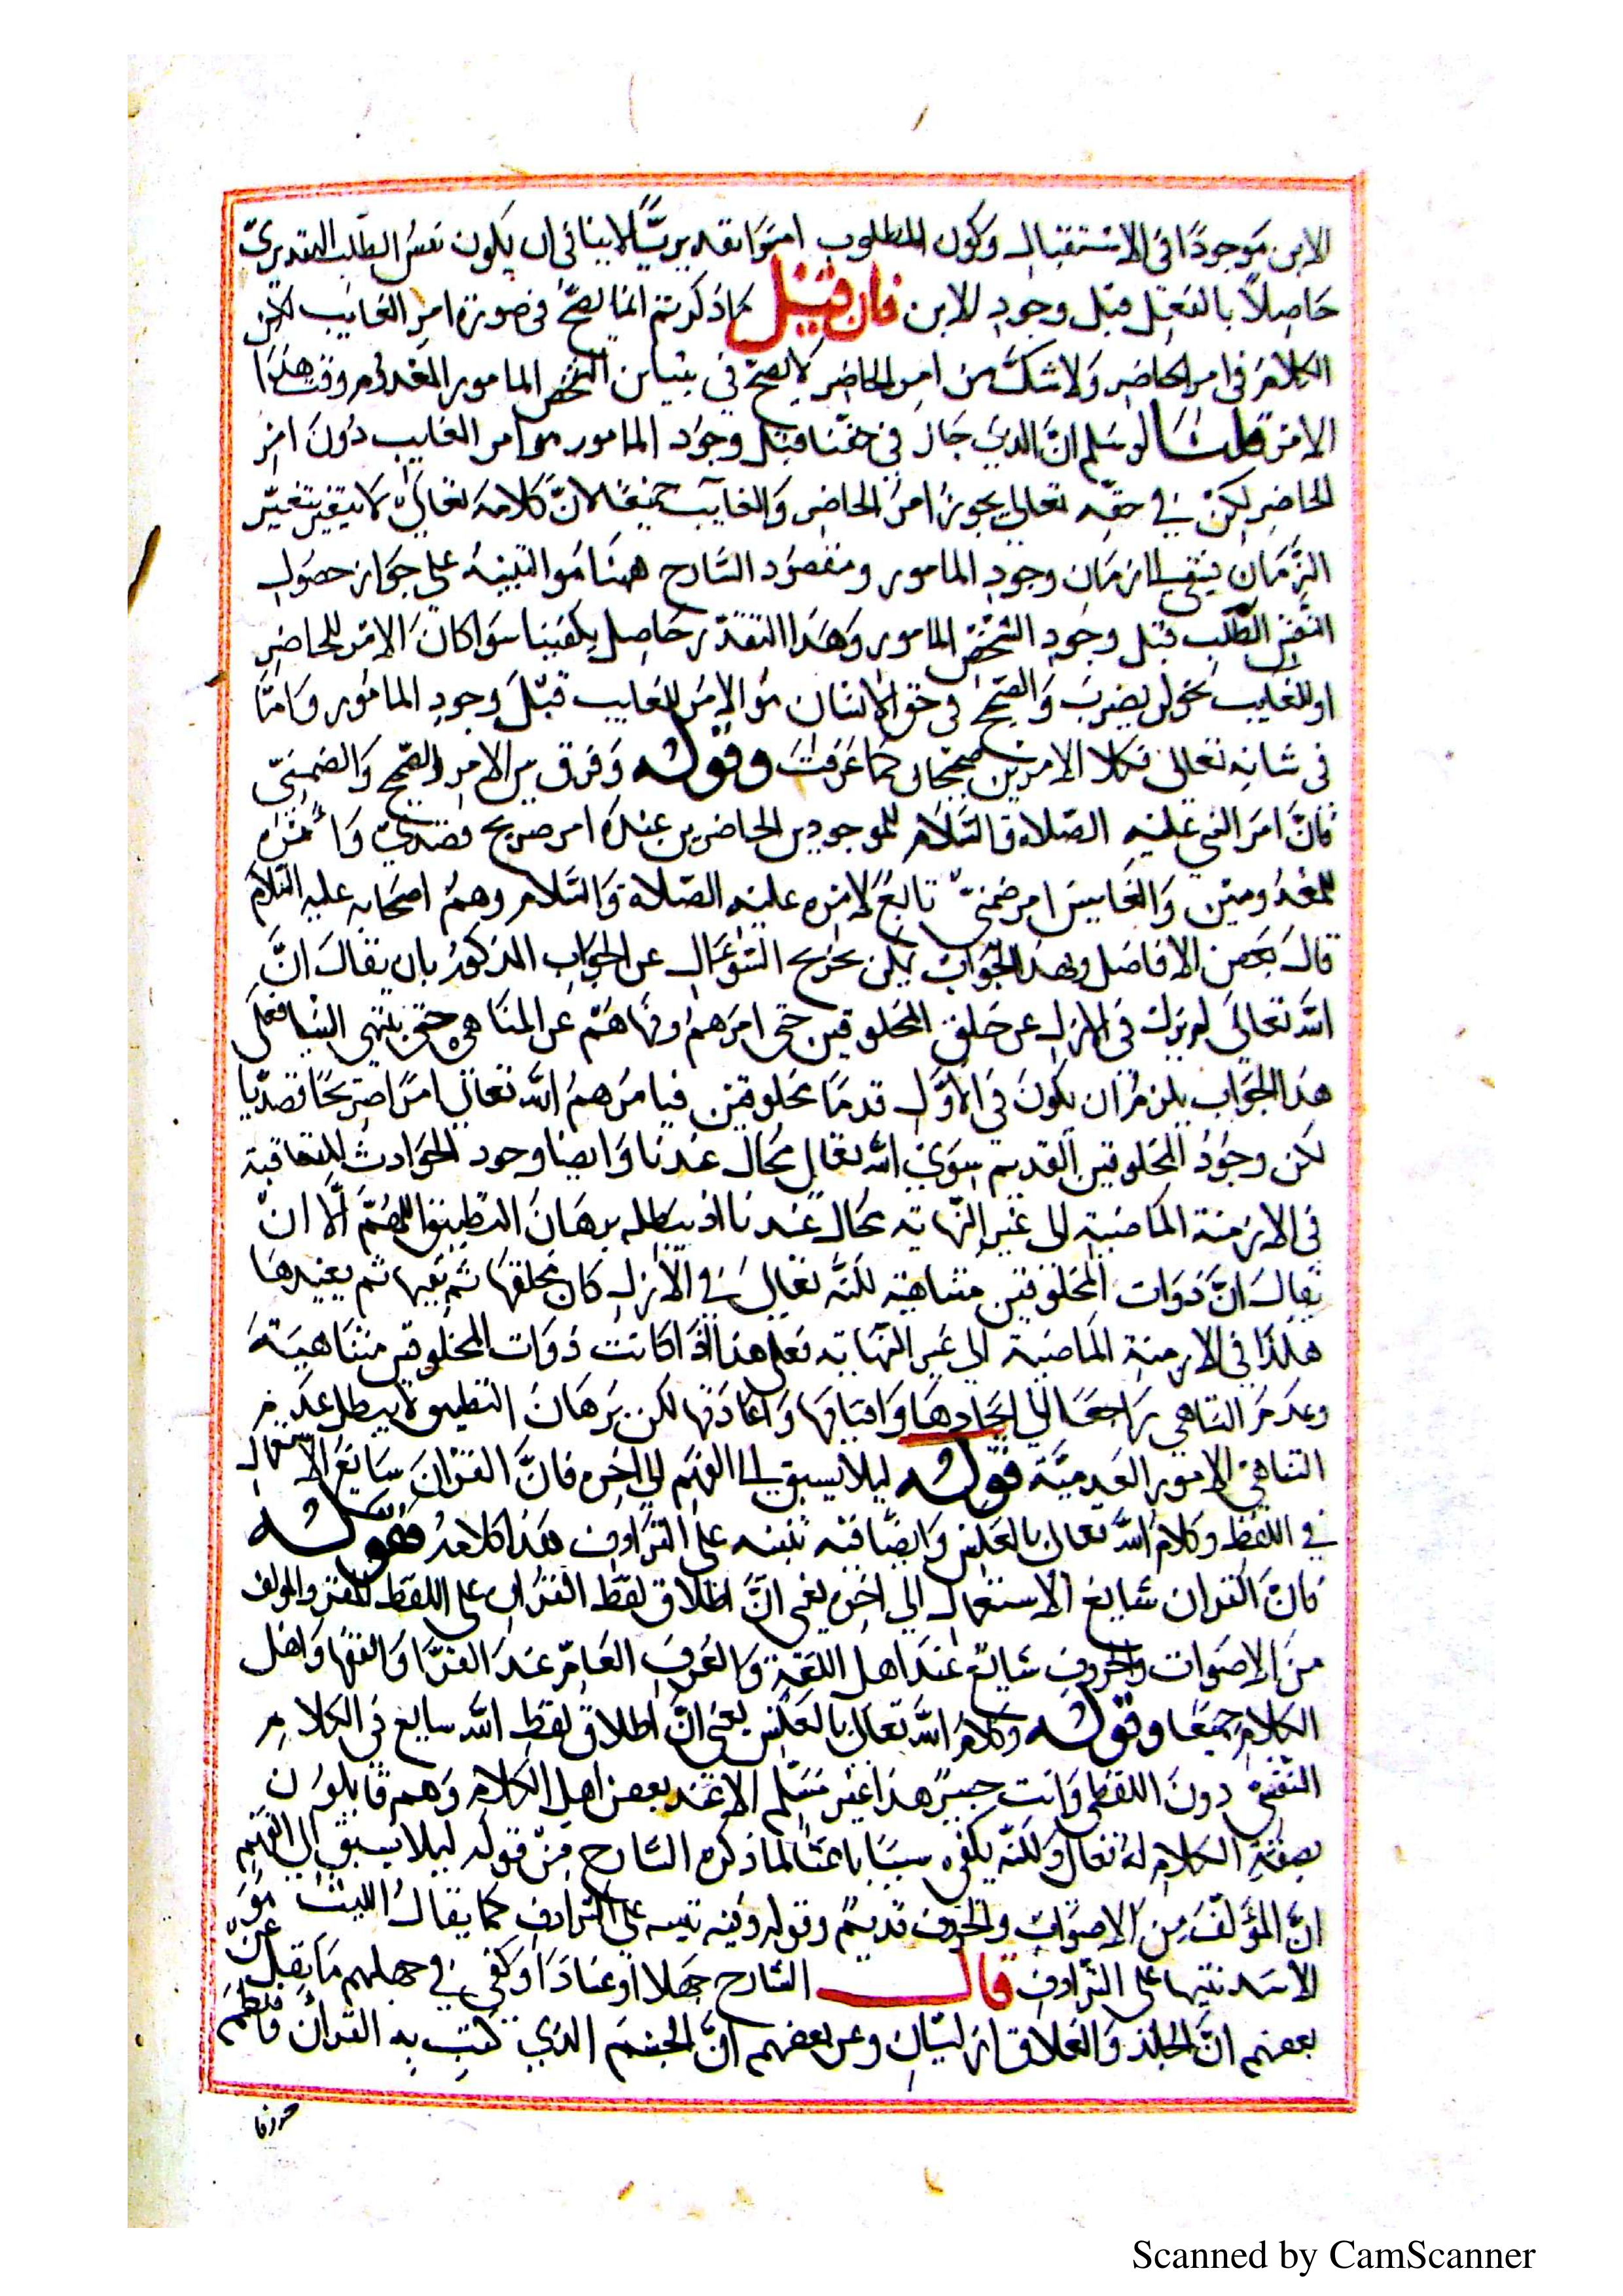 الابن موجودًا في الاستقبال وكون المطلوب امرًا تقديريًّا لا ينافي ان يكون نفسُ الطلب التقديريّ
حَاصِلاً بالفعل قبل وجودِ الابن فان قيل ما ذكرتم انما يصحّ في صورة امرِ الغايب لكن
الكلام في امر الحاضِر وَلا شكّ من امرِ الحاضِر لا يصحّ في الشخص المامور المعدُوم وقت هذا
الامر قلنا سلم انّ الذي جاز في حقّنا قبل وجوُد المامور هو امر الغايب دُونَ امرِ
الحاضِر لكنْ في حقّه تعالى يجوز امرُ الحاضِر وَالغايب جميعًا لانّ كلامه تعالى لا يتغير بتغيّر
الزّمَان فيتقى الى زمَانِ وجودِ المامور ومقصُود الشارح ههنا هُوَ التنبيهُ على جوَاز حصُول
النفسى الطلب قبل وجودِ الشخص المامور وَهَذا التقدّر حَاصِل يكفينا سَوا كانَ الامْر للحاضِر
او للغايب نحو ليضربْ وَالصحيح في حق الانسَان هُوَ الامرُ للغايب قبْلَ وجودِ المامُور وَامّا
في شانه تعالى فكلا الامرَين صحيحان كما عَرفتَ وقوله وَفرق بين الامرِ الصّحيح وَالضمنيّ
فانّ امرَ النبي عليْهِ الصّلاة والسَّلام للموجودين الحاضرين عندهُ امر صريح قصديّ وَامْره
للمعْدُومين وَالغايبين امر ضمنيّ تابعٌ لامْره عليْه الصّلاة وَالسَّلام وهمُ اصحَابه عليه السّلام
قالَ بعض الافاضل وبهذا الجوَابْ يمكن تخريج السّوَال عن الجوَاب المذكور بان يقالَ انَّ
الله تعالىَ لم يزلْ في الازلِ عن خلق المخلوقين حتى امرَهمْ ونهاهمْ عن المنَاهي حتى ينتهي الينا فعلى
هذا الجوَاب يلزمُ ان يكونَ في الاوّل قدمًا مخلوقين فيامرُهمُ الله تعالى امرًا صَريحًا قصديّا
لكن وجُودُ المخلوقين القديم سِوَى الله تعالى محالٌ عندنا وَايضا وجود الحَوَادث المتعاقبة
في الازمنة المَاضيةِ الى غير النّهايَة محال عندنا اذ يبطله برهَانُ التطبيق اللهُمَّ الّا انْ
يقالَ انَّ ذوَات المخلوقين متناهية لكنّه تعالىَ في الازل كان يخلقهَا ثم يفنيها ثم يعيدهَا
هكذا في الازمنةِ المَاضية الى غير النّهاية فعلى هذا اذا كانت ذوَات المخلوقين متناهيَةً
وعدمُ التناهي رَاجعًا الى ايجادهَا وَافنايهَا وَاعَادَتها لكن برَهَانُ التطبيق لا يبطل عدَم
التناهي الامور العَدميّة قوله ليلا يسبق الى الفهَم الى اخره فانَّ القرْانَ شايعُ الاستعمال
في اللفظ وكلامُ الله تعالى بالعكس وَايضًا فيه تنبيه على الترَادف هَذا كلامهُ قوله
فانّ القران شايعُ الاستعمال الى اخره يعني انّ اطلاق لفظ القرْان على اللفظ المقرو المولف
منَ الاصوَات والحُروفِ شايعٌ عندَ اهل اللغة وَالعُرفِ العَامّ عندَ القرّا وَالفقها وَاهْل
الكلامِ جميعًا وقوله وكلامُ الله تعالى بالعكس يعني انّ اطلاق لفظ الله سايع في الكلام
النفسيّ دونَ اللفظي وَانت خبيرٌ هذا غير مُسَلّم الا عند بعض اهل الكلام وَهم قايلوُن
بصفة الكلام له تعالى وَلكنّه يكفى سببًا باعثًا لما ذكره الشارح مِنْ قوله ليلا يسبق الى الفهم
انَّ المؤَلّفَ مِن الاصوَاتِ والحُروف قديمٌ وقوله وفيه تنبيه على الترادفِ كما يقالُ الليثُ هوَ
الاسَد تنبيها على الترّادفِ قال الشارح جَهلا اوْ عنادَا وَكفى في جهلهم مَا نقِل عنْ
بعضهم انّ الجلد وَالغلاق ازليّان وعن بعضهم انّ الجسْم الذي كتبَ بهِ القرانُ فانتظمَ
حروفا
Scanned by CamScanner